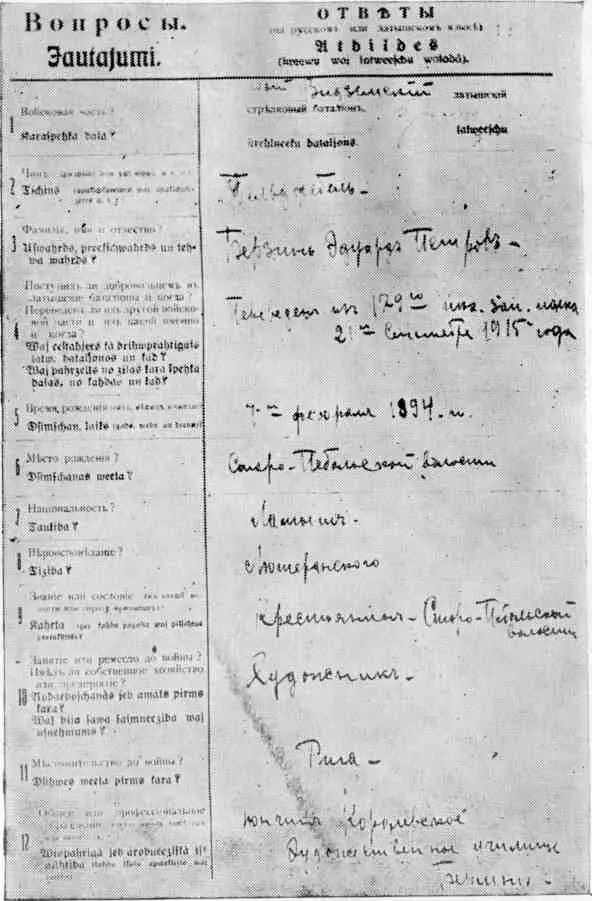 Вопросы.
Jautajumi.
ОТВѢТЫ
(на русскомъ или латышскомъ языкѣ)
Atbildes
(kreewu waj latweeschu walodâ).
1
Войсковая часть?
Karaspehka dala?
Видземскій латышскій
стрѣлковый баталіонъ.
latweeschu
strehlneeku bataljons.
2
Чинъ
Tschins
3
Фамилія, имя и отчество?
Uswahrds, preekschwahrds un teh-
wa wahrds?
Берзинь Эдуардъ Петровъ –
4
Поступилъ ли добровольцемъ въ
латышскіе баталіоны и когда?
Переведенъ ли изъ другой войско-
вой части и изъ какой именно
и когда?
Waj eestahjees kâ brihwprahtigais
latw. bataljonos un kad?
Waj pahrzelts no zitas kara spehka
dalas, no kahdas un kad?
Переведенъ изъ 179го пѣх. зап. полка
21го Сентября 1915 года
5
Время рожденія
Dsimschan. laiks
7го февраля 1894. г.
6
Мѣсто рожденія?
Dsimschanas weeta?
Старо-Пебальской волости
7
Національность?
Tautiba?
Латышъ.
8
Вѣроисповѣданіе?
Tiziba?
Лютеранскаго
9
Званіе или сословіе
Kahrta
Крестьянинъ – Старо-Пебальской
волости
10
Занятіе или ремесло до войны?
Имѣлъ ли собственное хозяйство
или предпріятіе?
Nodarboschanâs jeb amats pirms
kara?
Waj bija sawa saimneeziba waj
usnehmums?
Художникъ –
11
Мѣстожительство до войны?
Dsihwes weeta pirms kara?
Рига –
12
Общее или профессіональное
Wispahrigâ jeb arodneezistâ is-
glihtiba
Королевское
Художественное училище